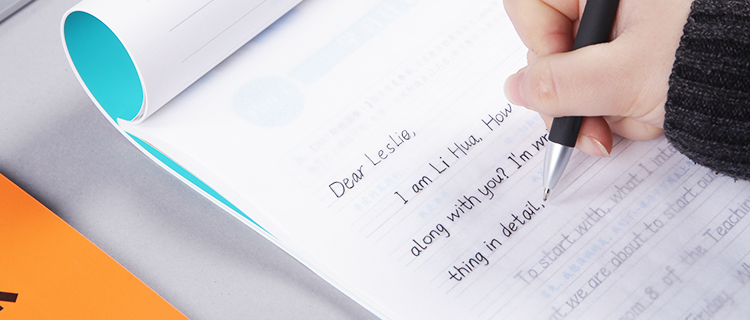 Dear Leslie,
I am Li Hua. How
along with you? I'm wr
thing in detail.
To start with, what I int
at we are about to start ou
m 8 of the Teaching
Friday